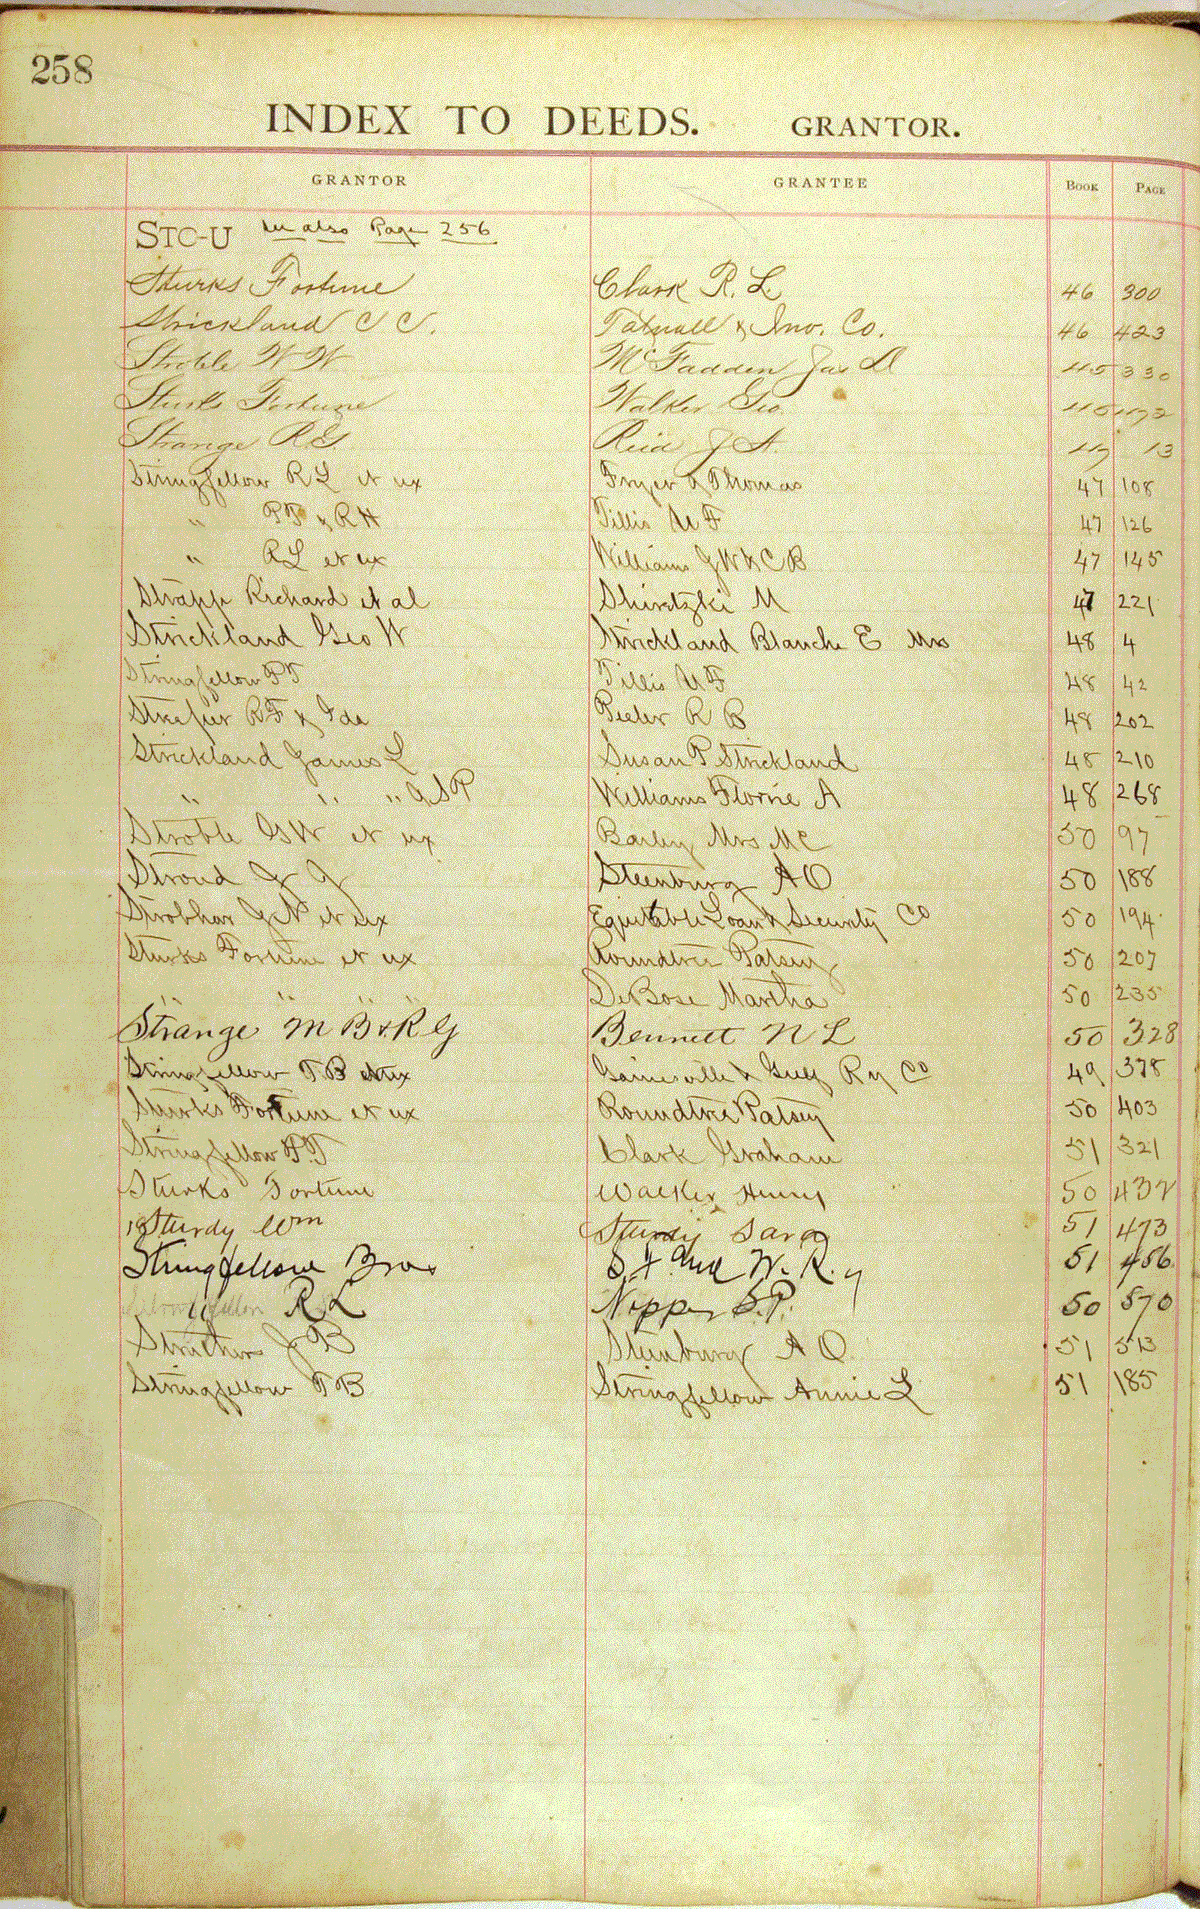 258
INDEX TO DEEDS. GRANTOR.
GRANTOR GRANTEE BOOK PAGE
STO-U see also Page 256
Sturks Fortune Clark R. L 46 300
Strickland C C. Tatnall & Inv. Co. 46 423
Stroble W W McFadden Jas D 45 330
Sturks Fortune Walker Geo. 45
Strange R G. Reid J A. 13
Stringfellow R L et ux Fryer & Thomas 47 108
" & R H Tillis M F 47 126
" R L et ux Williams J W & C B 47 145
Strapp Richard et al M 47 221
Strickland Geo W Strickland Blanche E Mrs 48 4
Stringfellow Tillis M F 48 42
R F & Ida Peeler R B 48 202
Strickland James L Susan P Strickland 48 210
" " " & S P Williams Florrie A 48 268
Stroble G W et ux Mrs M C 50 97
Stroud J J Steenburg A O 50 188
Strobhar et ux Equitable Loan & Security Co 50 194
Sturks Fortune et ux Roundtree Patsey 50 207
" " " " DeBose Martha 50 235
Strange M B & R G Bennett N L 50 328
Stringfellow T B et ux Gainesville & Gulf Ry Co 49 378
Sturks Fortune et ux Roundtree Patsey 50 403
Stringfellow Clark Graham 51 321
Sturks Fortune Walker Henry 50 432
Sturdy Wm Sturdy Sara 51 473
Stringfellow Bros S F and W. R.y 51 456
" R L S.P. 50 570
J B Steenburg A O. 51 513
Stringfellow T B Stringfellow Annie L 51 185